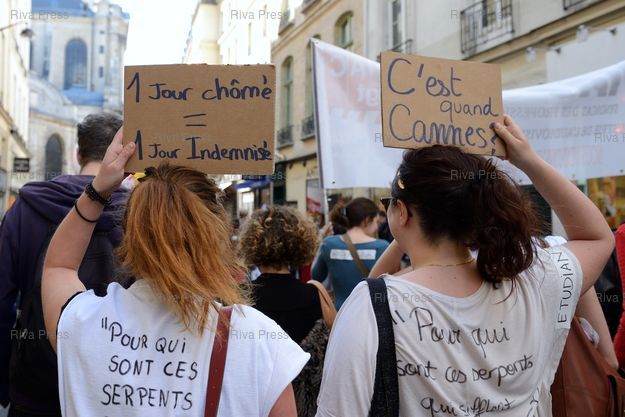 1 Jour chômé
=
1 Jour Indemnisé
C'est
quand
Cannes?
"Pour qui
sont ces
serpents
"Pour qui
sont ces serpents
qui sifflent
ETUDIAN
Riva Press